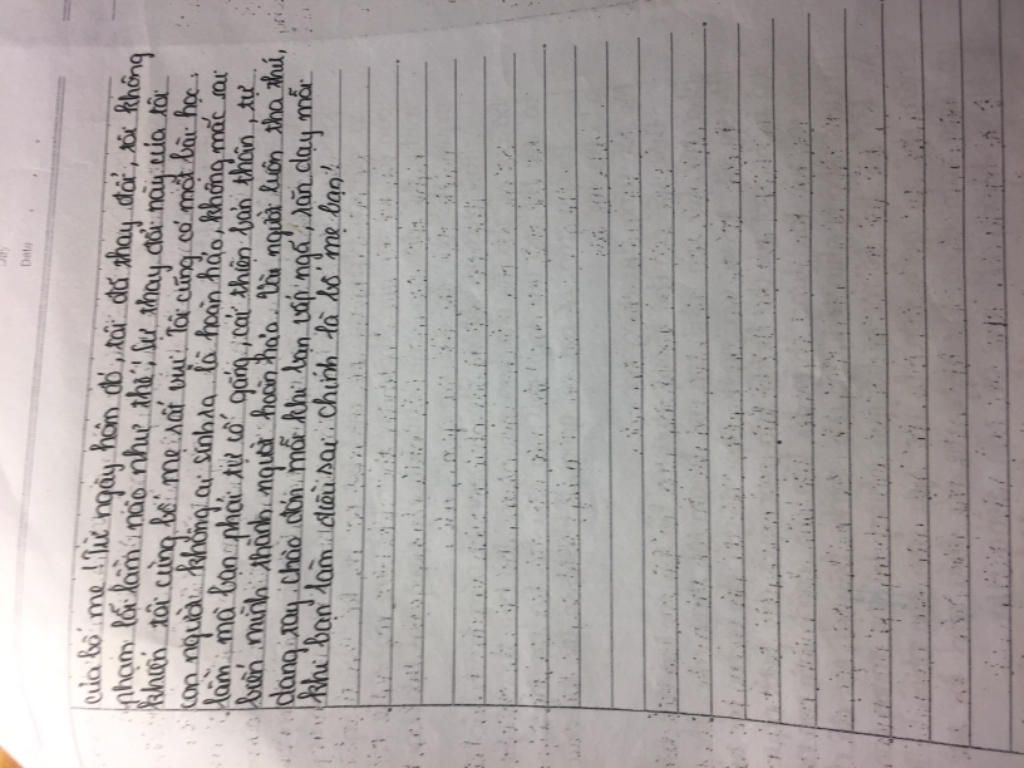 Day
Date
của bố mẹ! Từ ngày hôm đó, tôi đã thay đổi, tôi không
phạm lỗi lầm nào như thế! Sự thay đổi này của tôi
khiến tôi cùng bố mẹ rất vui! Tôi cũng có một bài học,
con người không ai sinh ra là hoàn hảo, không mắc sai
lầm mà bạn phải tự cố gắng, cải thiện bản thân, tự
biến mình thành người hoàn hảo. Và người luôn tha thứ,
dang tay chào đón mỗi khi bạn vấp ngã, răn dạy mỗi
khi bạn làm điều sai chính là bố mẹ bạn!